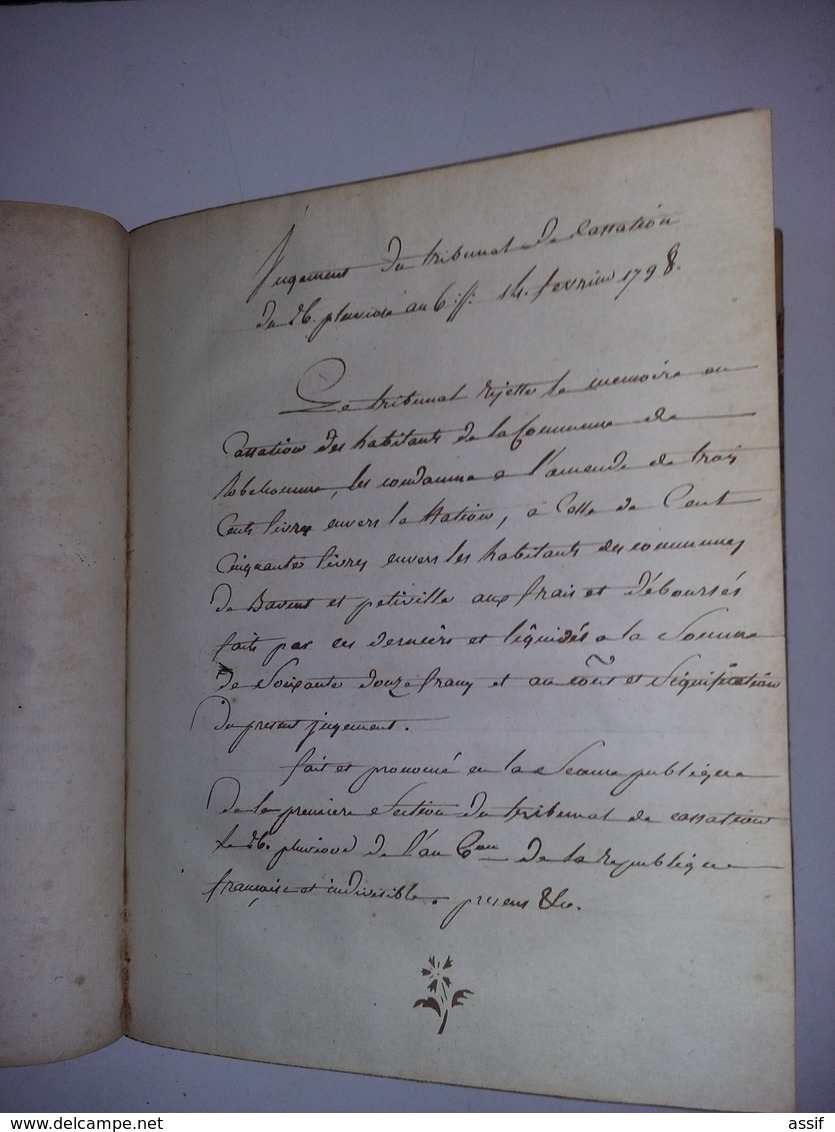 Jugement du tribunal de Cassation
du 26. pluviose an 6 :/: 14. fevrier 1798.
Le tribunal rejette le memoire en
Cassation des habitants de la Commune de
Robehomme, les condamne a l'amende de trois
Cents livres envers la Nation, à Celle de Cent
Cinquante livres envers les habitants des communes
de Bavent et petiville aux frais et déboursés
faits par ces derniers et liquidés a la Somme
de Soixante douze francs et au coût et Signification
du present jugement.
fait et prononcé en la Seance publique
de la premiere Section du tribunal de cassation
le 26. pluviose de l'an 6eme de la republique
française et indivisible. presens &a.
delcampe.net
assif